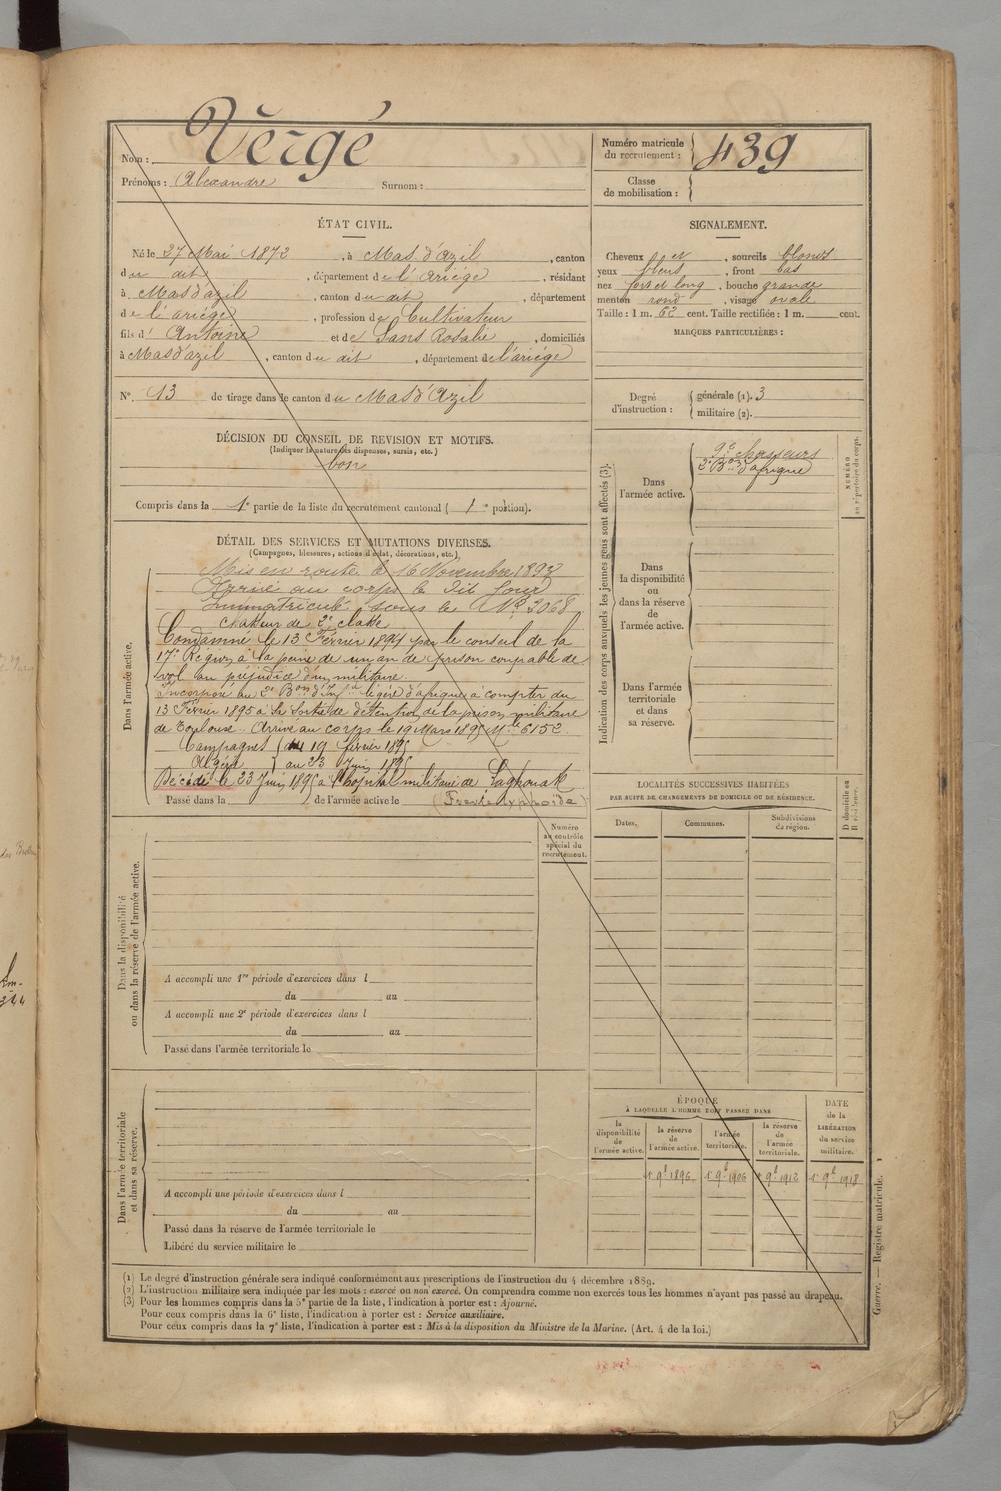 Nom : Vergé
Prénoms : Alexandre Surnom :
Numéro matricule du recrutement : 439
Classe de mobilisation :
ÉTAT CIVIL.
Né le 27 Mai 1872, à Mas d'azil, canton
du dit, département de l'Ariége, résidant
à Mas d'azil, canton du dit, département
de l'ariége, profession de Cultivateur
fils d'Antoine et de Sans Rosalie, domiciliés
à Mas d'azil, canton du dit, département de l'ariége
N° 13 de tirage dans le canton du Mas d'Azil
DÉCISION DU CONSEIL DE REVISION ET MOTIFS.
(Indiquer la nature des dispenses, sursis, etc.)
bon
Compris dans la 1e partie de la liste du recrutement cantonal ( 1 e portion).
SIGNALEMENT.
Cheveux et, sourcils blonds
yeux bleus, front bas
nez fort et long, bouche grande
menton rond, visage ovale
Taille : 1 m. 62 cent. Taille rectifiée : 1 m. cent.
MARQUES PARTICULIÈRES :
Degré d'instruction : générale (1). 3
militaire (2).
DÉTAIL DES SERVICES ET MUTATIONS DIVERSES.
(Campagnes, blessures, actions d'éclat, décorations, etc.)
Dans l'armée active.
Mis en route le 16 Novembre 1893
Arrivé au corps le dit Jour
Immatriculé sous le N° 3068
chasseur de 2e classe
Condamné le 13 Février 1894 par le conseil de la
17e Région à la peine de un an de prison coupable de
vol au préjudice d'un militaire.
Incorporé au 2e Bon d'Infie légère d'afrique a compter du
13 Février 1895 à sa sortie de détention de la prison militaire
de Toulouse. Arrivé au corps le 19 Mars 1895 Mle 6152
Campagnes 19 février 1895
Algérie au 23 Juin 1895
Décédé le 23 Juin 1895 à l'hopital militaire de Laghouat
Passé dans la de l'armée active le (Fièvre typhoïde)
Indication des corps auxquels les jeunes gens sont affectés (3).
Dans l'armée active.
9e chasseurs
2e Bon d'afrique
NUMÉRO au répertoire du corps.
Dans la disponibilité ou dans la réserve de l'armée active.
Dans l'armée territoriale et dans sa réserve.
LOCALITÉS SUCCESSIVES HABITÉES
PAR SUITE DE CHANGEMENTS DE DOMICILE OU DE RÉSIDENCE.
Dates. Communes. Subdivisions de région. D domicile ou R résidence.
Numéro au contrôle spécial du recrutement.
Dans la disponibilité ou dans la réserve de l'armée active.
A accompli une 1re période d'exercices dans l
du au
A accompli une 2e période d'exercices dans l
du au
Passé dans l'armée territoriale le
Dans l'armée territoriale et dans sa réserve.
A accompli une période d'exercices dans l
du au
Passé dans la réserve de l'armée territoriale le
Libéré du service militaire le
ÉPOQUE
À LAQUELLE L'HOMME DOIT PASSER DANS
la disponibilité de l'armée active.
la réserve de l'armée active.
l'armée territoriale.
la réserve de l'armée territoriale.
DATE de la LIBÉRATION du service militaire.
1er 9e 1896 1er 9e 1906 1er 9e 1912 1er 9e 1918
(1) Le degré d'instruction générale sera indiqué conformément aux prescriptions de l'instruction du 4 décembre 1889.
(2) L'instruction militaire sera indiquée par les mots : exercé ou non exercé. On comprendra comme non exercés tous les hommes n'ayant pas passé au drapeau.
(3) Pour les hommes compris dans la 5e partie de la liste, l'indication à porter est : Ajourné.
Pour ceux compris dans la 6e liste, l'indication à porter est : Service auxiliaire.
Pour ceux compris dans la 7e liste, l'indication à porter est : Mis à la disposition du Ministre de la Marine. (Art. 4 de la loi.)
Guerre. — Registre matricule.